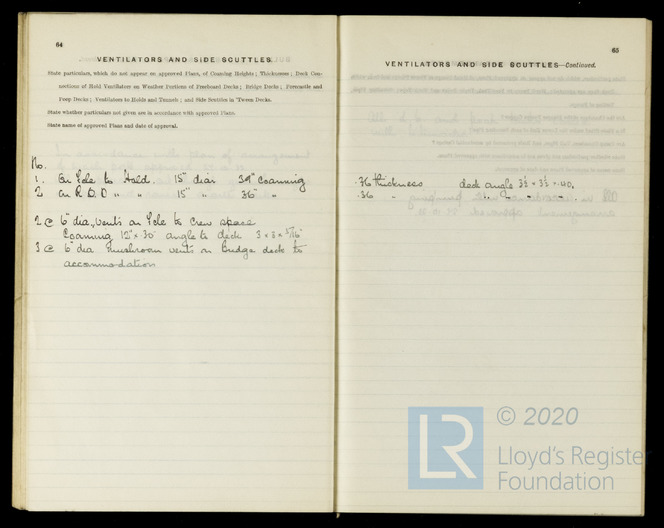 64
VENTILATORS AND SIDE SCUTTLES.
State particulars, which do not appear on approved Plans, of Coaming Heights; Thicknesses; Deck Con-
nections of Hold Ventilators on Weather Portions of Freeboard Decks; Bridge Decks; Forecastle and
Poop Decks; Ventilators to Holds and Tunnels; and Side Scuttles in 'Tween Decks.
State whether particulars not given are in accordance with approved Plans.
State name of approved Plans and date of approval.
No.
1. On Fcle to Hold. 15" diar 39" Coaming
2 On R.Q.D " " 15" " 36" "
2 @ 6" dia. vents on Fcle to Crew space
Coaming 12" × .30 angle to deck 3 × 3 × 5/16"
3 @ 6" dia mushroom vents on Bridge deck to
accommodation
65
VENTILATORS AND SIDE SCUTTLES—Continued.
.36 thickness deck angle 3½ × 3½ × .40.
.36 " " " "
© 2020
LR
Lloyd's Register
Foundation